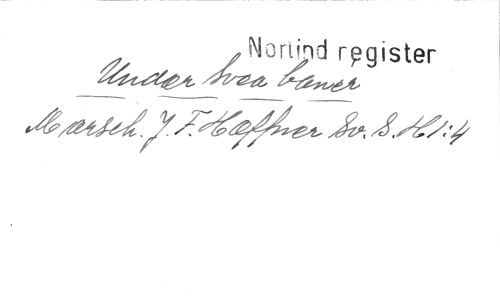 Norlind register
Under Svea baner
Marsch. J. F. Hæffner Sv. S. H 1:4